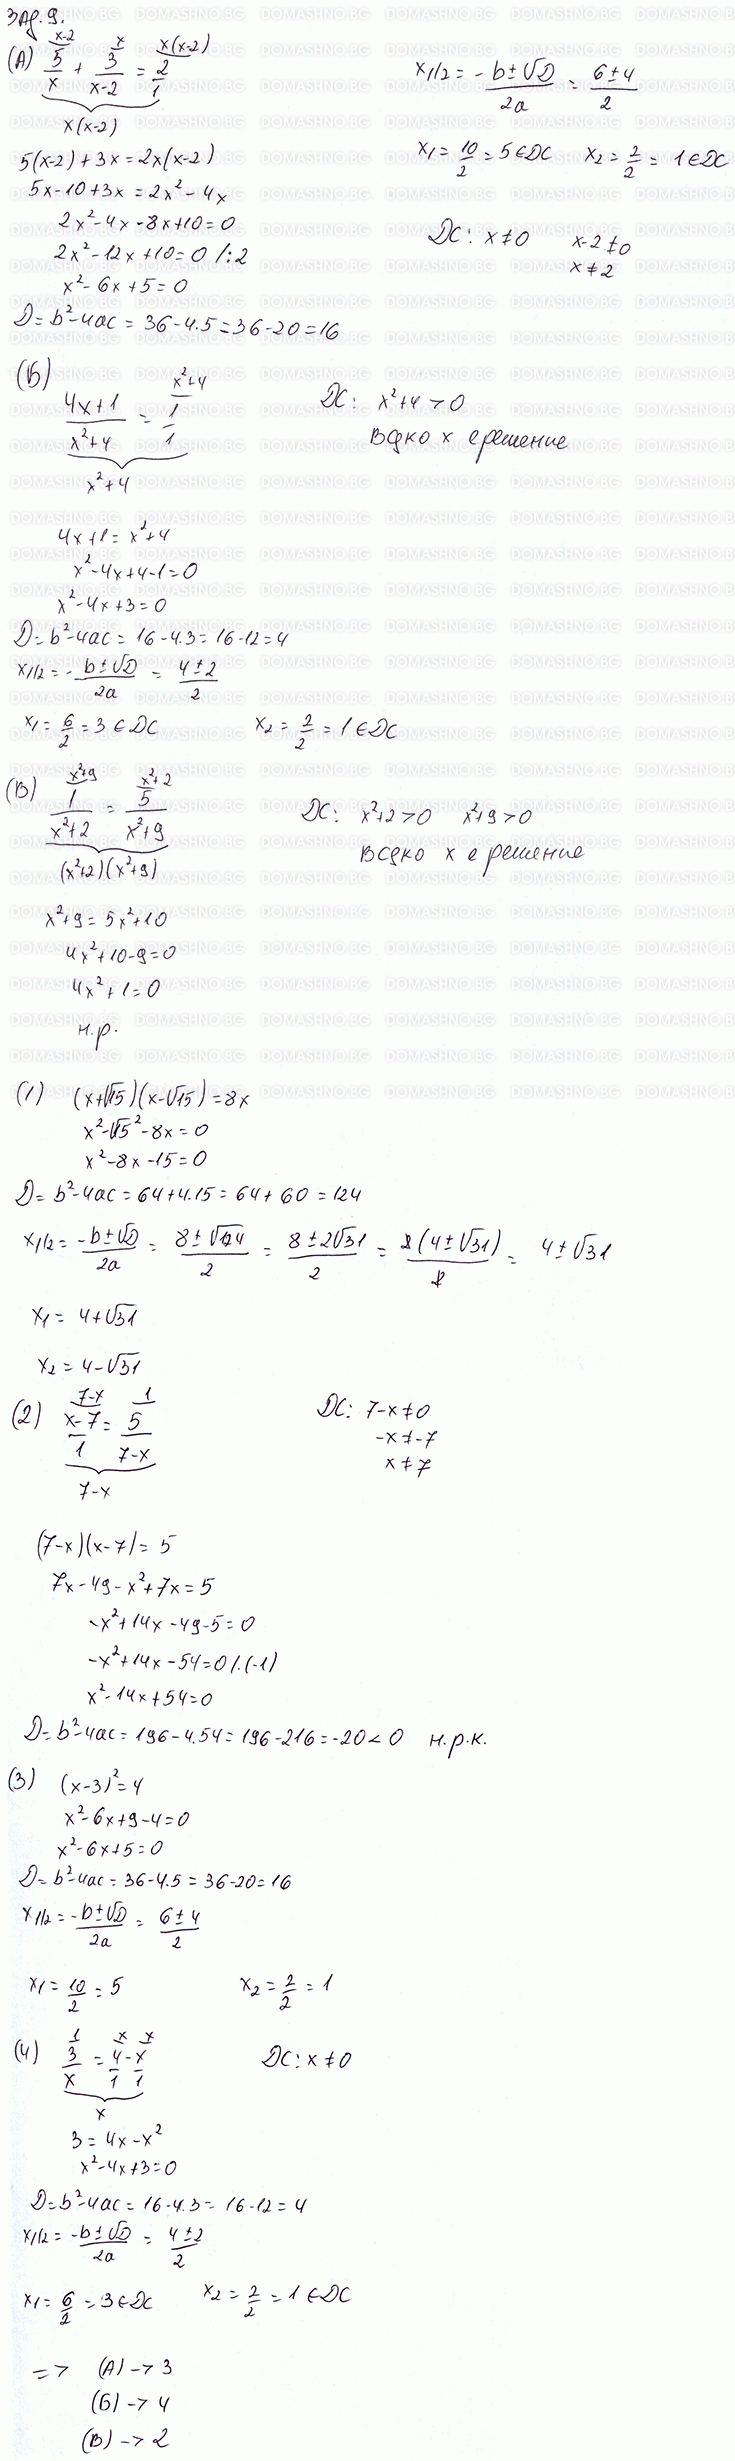 Зад. 9.
x-2 x x(x-2)
(А) 5/x + 3/(x-2) = 2/1
x(x-2)
5(x-2)+3x=2x(x-2)
5x-10+3x=2x²-4x
2x²-4x-8x+10=0
2x²-12x+10=0 /:2
x²-6x+5=0
D=b²-4ac=36-4.5=36-20=16
x1/2 = (-b±√D)/2a = (6±4)/2
x1 = 10/2 = 5 ∈ DC x2 = 2/2 = 1 ∈ DC
DC: x≠0 x-2≠0
x≠2
(Б) x²+4
(4x+1)/(x²+4) = 1/1
x²+4
DC: x²+4>0
Всяко x е решение
4x+1=x²+4
x²-4x+4-1=0
x²-4x+3=0
D=b²-4ac=16-4.3=16-12=4
x1/2 = (-b±√D)/2a = (4±2)/2
x1 = 6/2 = 3 ∈ DC x2 = 2/2 = 1 ∈ DC
x²+9 x²+2
(В) 1/(x²+2) = 5/(x²+9)
(x²+2)(x²+9)
DC: x²+2>0 x²+9>0
Всяко x е решение
x²+9=5x²+10
4x²+10-9=0
4x²+1=0
н.р.
(1) (x+√15)(x-√15)=8x
x²-√15²-8x=0
x²-8x-15=0
D=b²-4ac=64+4.15=64+60=124
x1/2 = (-b±√D)/2a = (8±√124)/2 = (8±2√31)/2 = 2(4±√31)/2 = 4±√31
x1 = 4+√31
x2 = 4-√31
7-x 1
(2) (x-7)/1 = 5/(7-x)
7-x
DC: 7-x≠0
-x≠-7
x≠7
(7-x)(x-7)=5
7x-49-x²+7x=5
-x²+14x-49-5=0
-x²+14x-54=0 /.(-1)
x²-14x+54=0
D=b²-4ac=196-4.54=196-216=-20<0 н.р.к.
(3) (x-3)²=4
x²-6x+9-4=0
x²-6x+5=0
D=b²-4ac=36-4.5=36-20=16
x1/2 = (-b±√D)/2a = (6±4)/2
x1 = 10/2 = 5 x2 = 2/2 = 1
1 x x
(4) 3/x = 4/1 - x/1
x
DC: x≠0
3=4x-x²
x²-4x+3=0
D=b²-4ac=16-4.3=16-12=4
x1/2 = (-b±√D)/2a = (4±2)/2
x1 = 6/2 = 3 ∈ DC x2 = 2/2 = 1 ∈ DC
=> (А) -> 3
(Б) -> 4
(В) -> 2